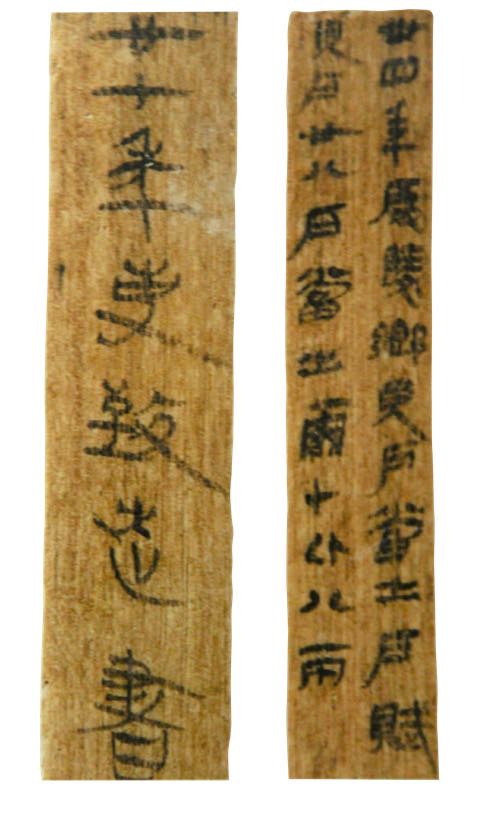 卅四年啟陵鄉見戶當出戶賦
見戶廿八戶當出繭十斤八兩
廿七年致書